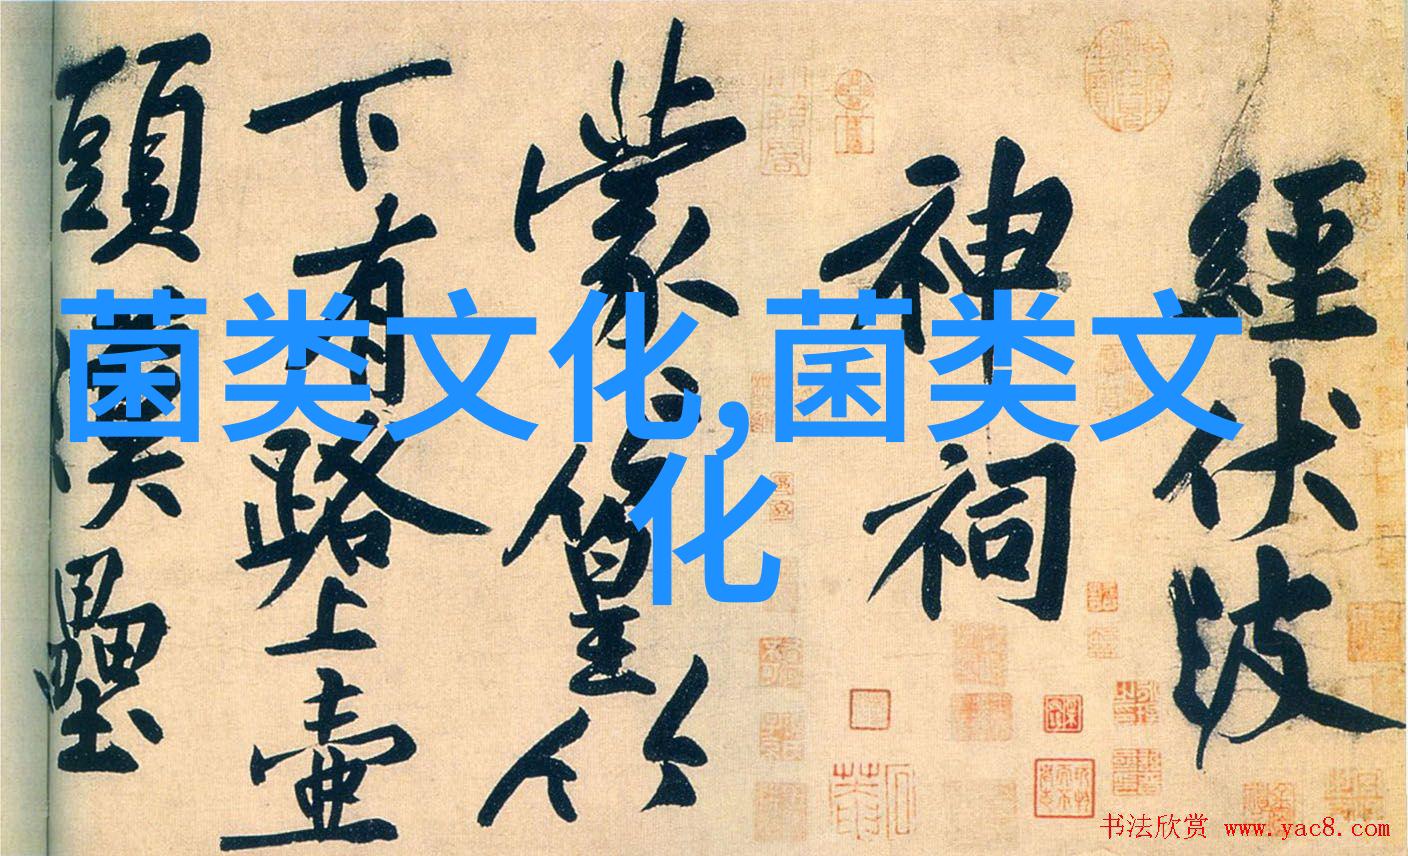 經伏波
神祠
蒙〻篁竹
下有路上壺
頭漢壘
菌类文化,菌类文
化
书法欣赏 www.yac8.com